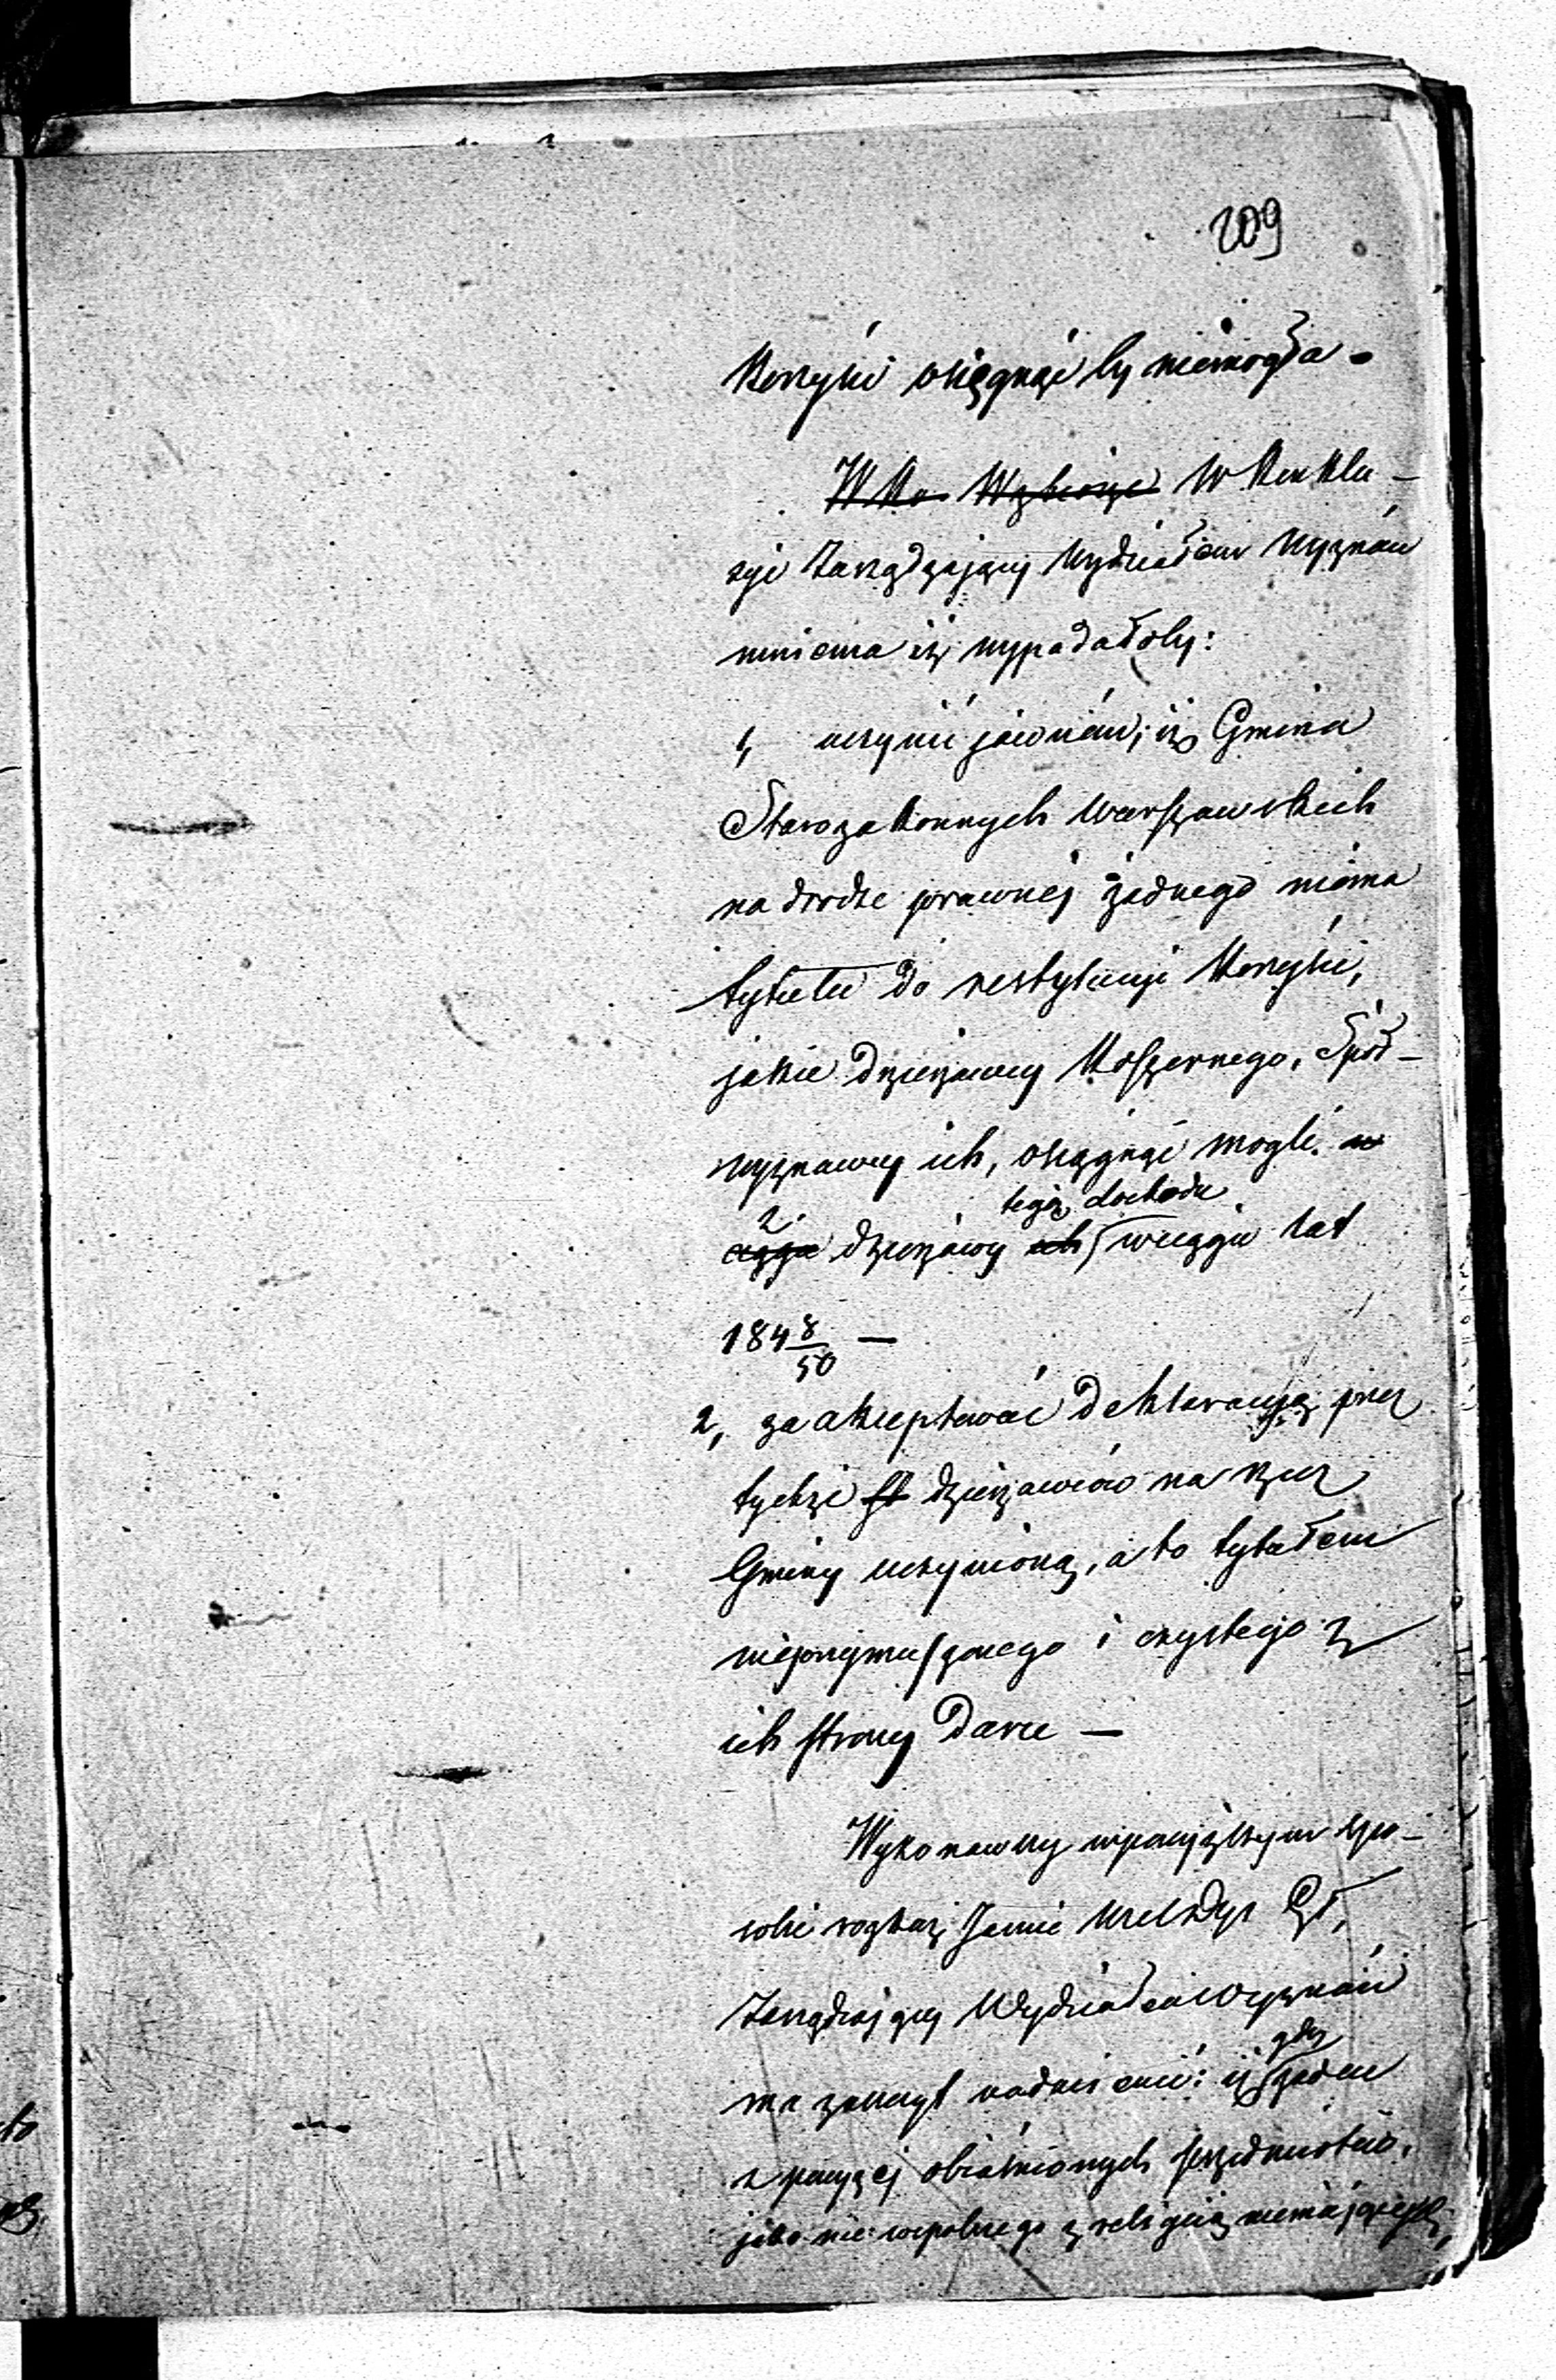 209
korzyści osięgnąć by niemogła.
W Ko Wybiorze W konklu-
zyi Zarządzający Wydziałem Wyznań
mniema iż wypadałoby:
1, uczynić jawném, iż Gmina
Starozakonnych Warszawskich
na drodze prawnéj żadnego niema
tytułu do restytucyi korzyści,
jakie dzierżawcy koszernego, spół-
wyznawcy ich, osiągnąć mogli. w
ciągu z dzierżawy ich tegoż dochodu w ciągu lat
184 8/50 —
2, zaakceptować deklaracyją przez
tychże st dzierżawców na rzecz
Gminy uczynioną, a to tytułem
nieprzymuszonego i czystego z
ich strony daru —
Wykonawszy w powyższym spo-
sobie rozkaz Jaśnie
Zarządzający Wydziałem Wyznań
ma zaszczyt nadmienić: iż gdy żaden
z powyżéj objaśnionych przedmiotów,
jako nic wspólnego z religiią niemających,